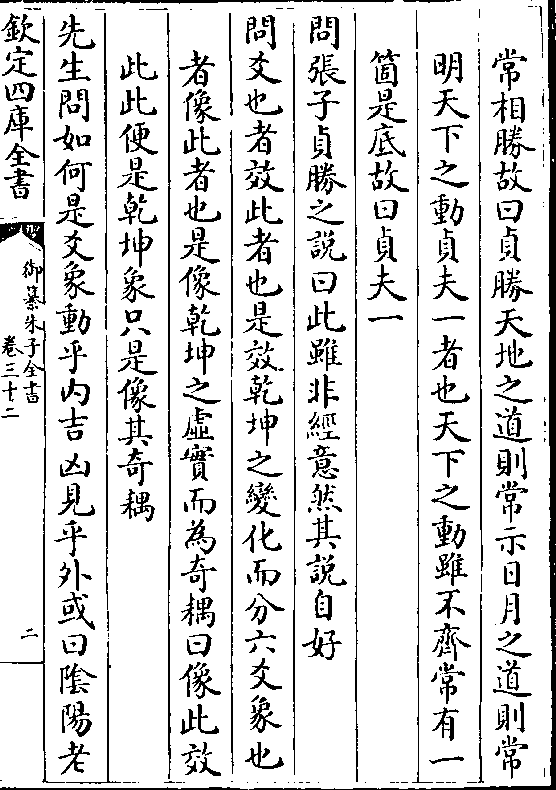 常相勝故曰貞勝天地之道則常示日月之道則常
明天下之動貞夫一者也天下之動雖不齊常有一
箇是底故曰貞夫一
問張子貞勝之說曰此雖非經意然其說自好
問爻也者效此者也是效乾坤之變化而分六爻象也
者像此者也是像乾坤之虛實而為奇耦曰像此效
此此便是乾坤象只是像其奇耦
先生問如何是爻象動乎內吉凶見乎外或曰陰陽老
欽定四庫全書
御纂朱子全書
卷三十二
二